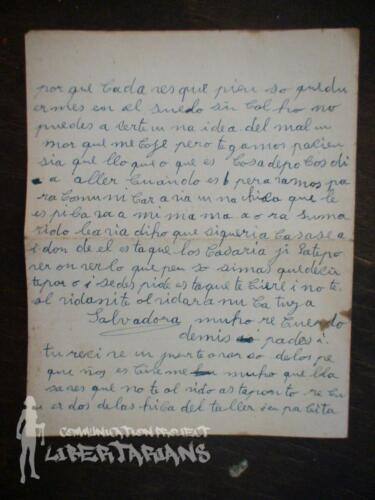 por que Cada ves que pien so que du
ermes en el suedo sin Col ho no
puedes a serte un na idea del mal u
mor que me Coje pero tegamos pacien
sia que llo quilo que es Cosa de po Cos di
a a aller Cuando es peravamos pa
ra Comuni Car a va un na hica que le
es pi Cava a mi ma ma a o ra su ma
rido le avia diho que si queria Casase a
i don de el esta que los Casaria ji
ver on ver lo que pen so si mas que decir
te por o i se des pide es ta que te
al vida ni te ol vidara nu Ca tu ya
Salvadora muho re Cuerdo
de mis pades i
tu reci ve un juerte avra so de los pe
que ños es Cri me muho que lla
sa ves que no te al vido as ta ponto re Cu
er dos de las hica del taller i en pa Cita
COMMUNICATION PROJECT
LIBERTARIANS